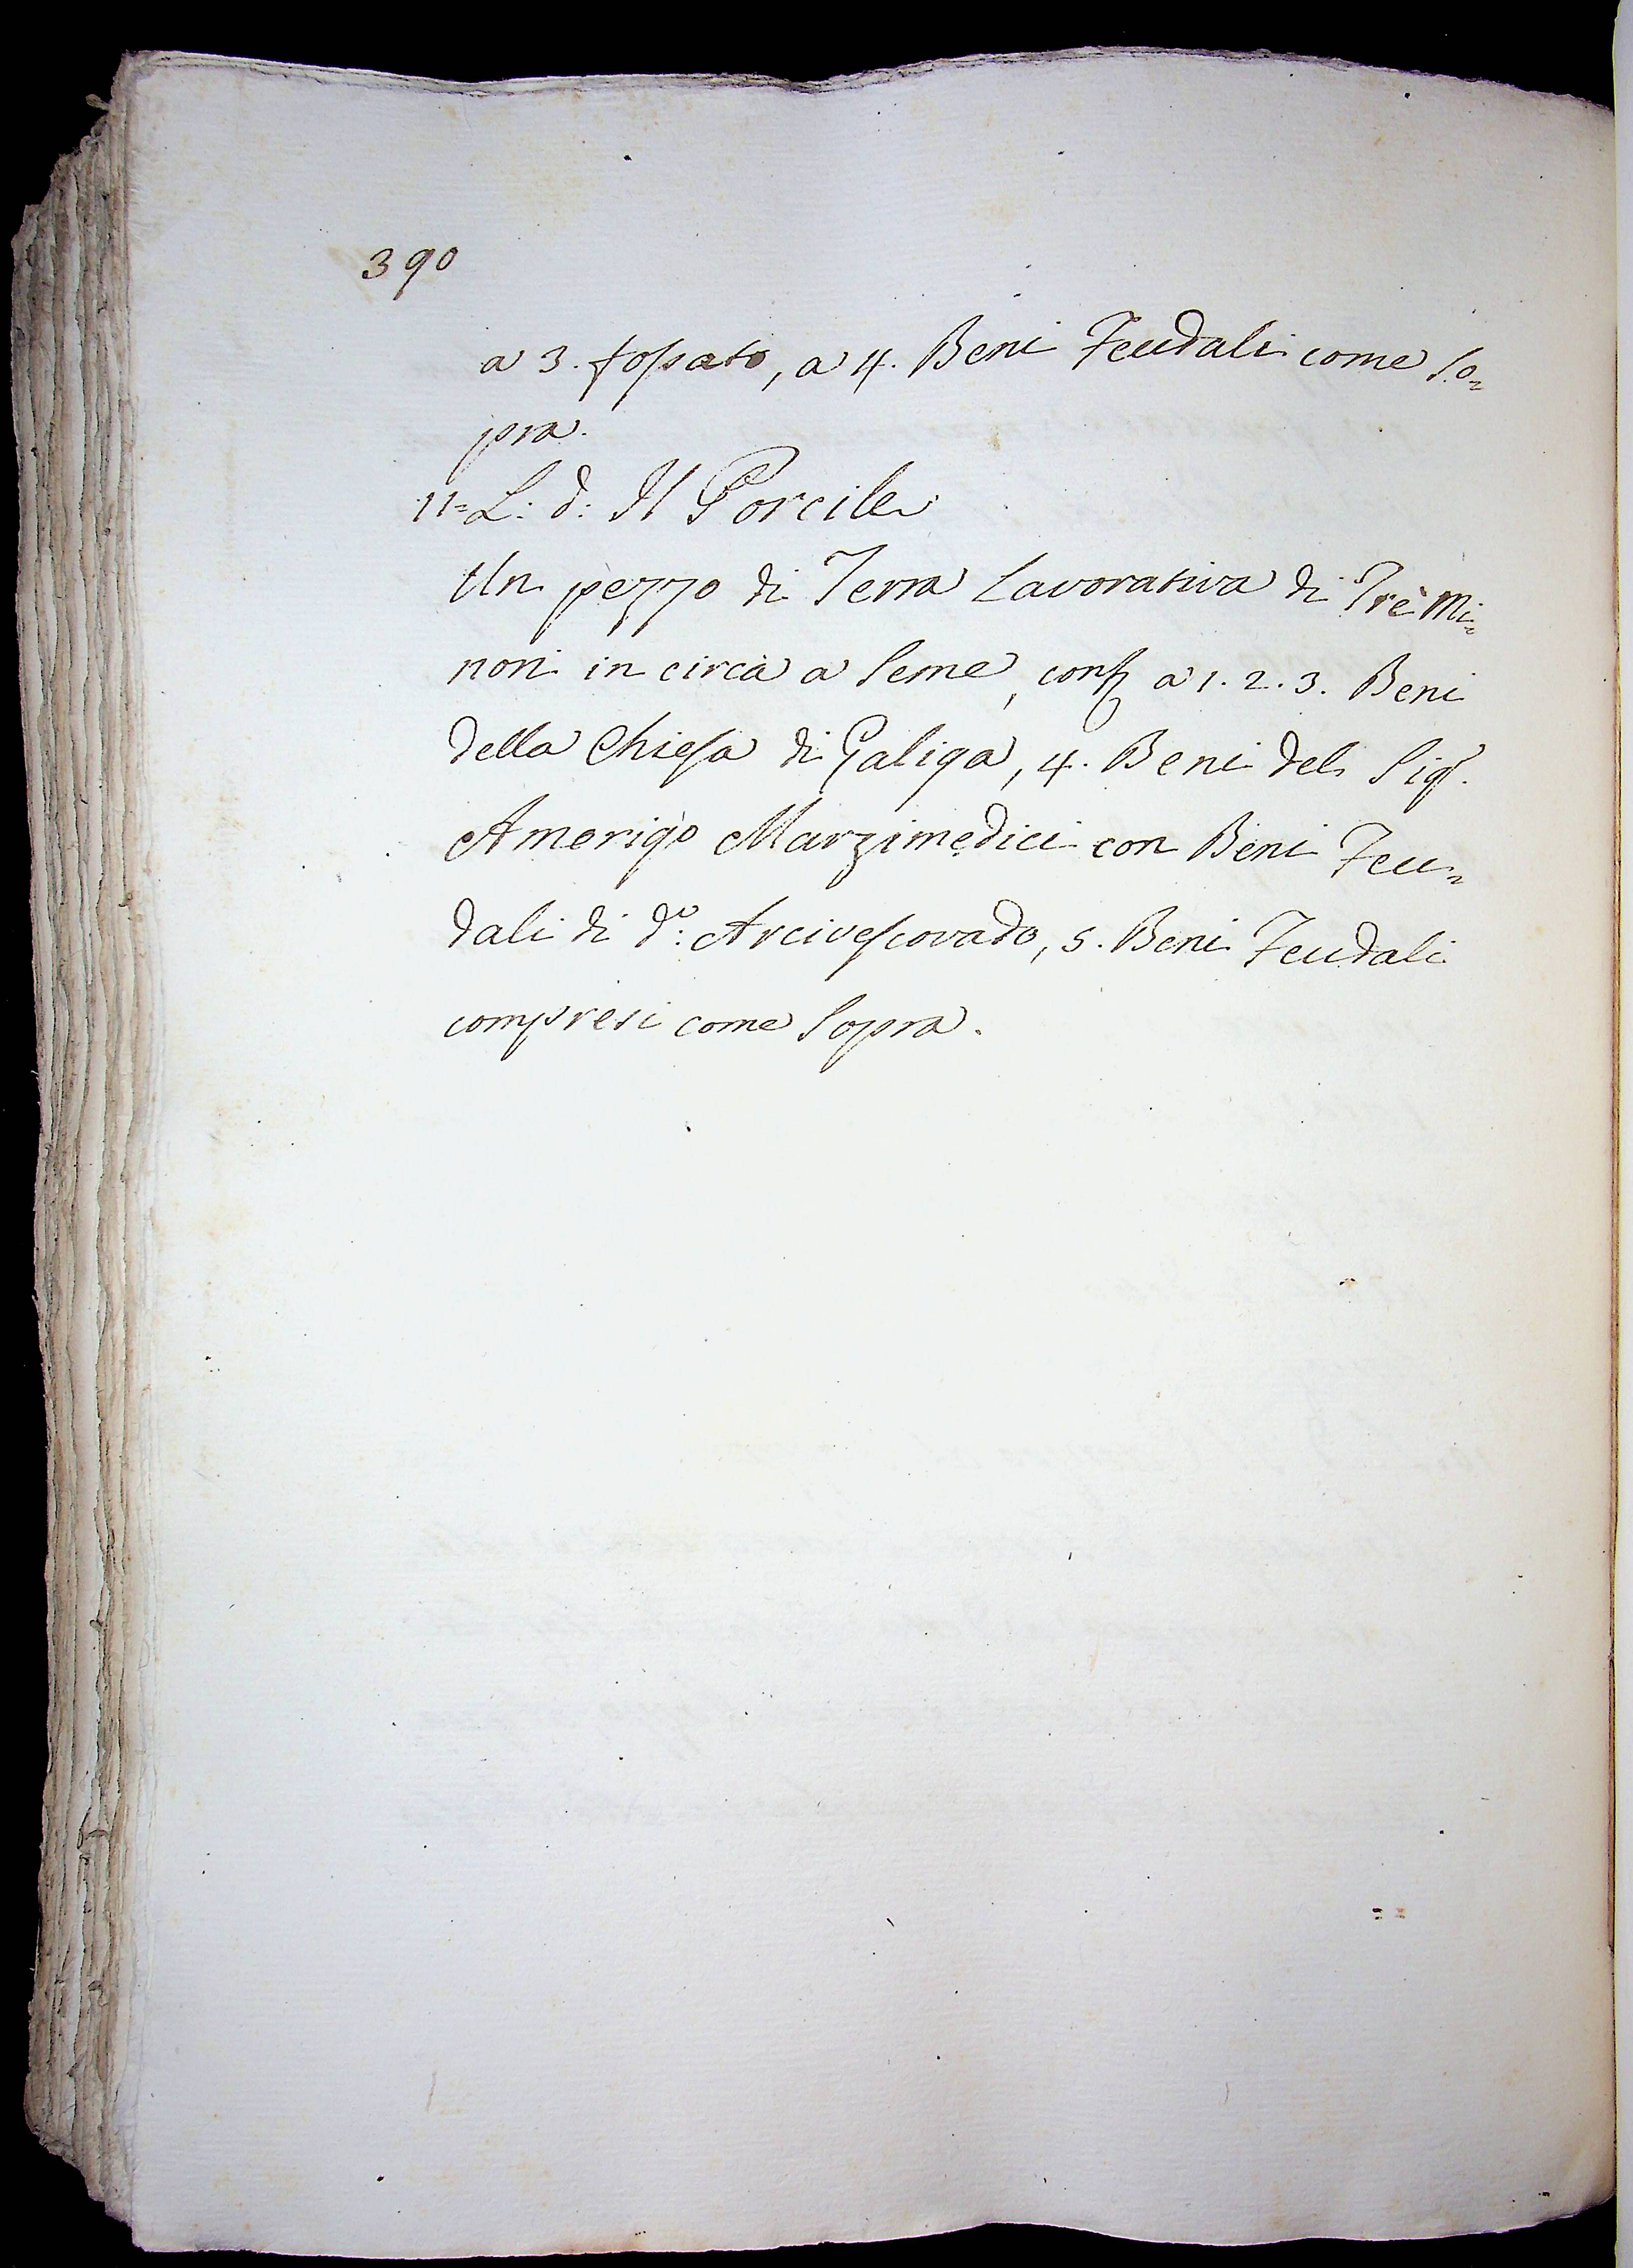 390
a 3. fossato, a 4. Beni Feudali come so=
pra.
11= L: d: Il Porcile
Un pezzo di Terra Lavorativa di Trè Mi=
nori in circa a seme, conf. a 1. 2. 3. Beni
della Chiesa di Galiga, 4. Beni del Sigr.
Amerigo Marzimedici con Beni Feu=
dali di do: Arcivescovado, 5. Beni Feudali
compresi come sopra.